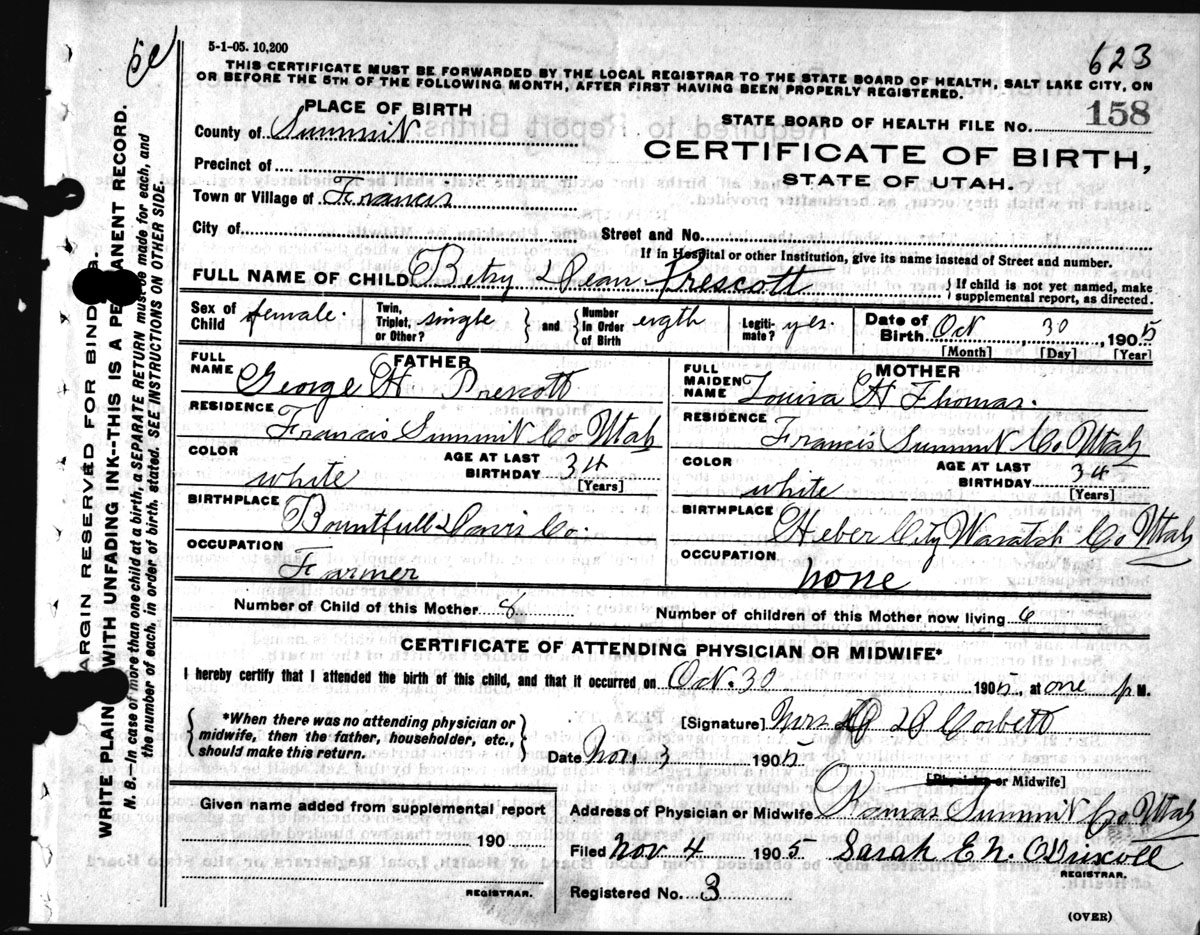 5-1-05. 10,200
623
THIS CERTIFICATE MUST BE FORWARDED BY THE LOCAL REGISTRAR TO THE STATE BOARD OF HEALTH, SALT LAKE CITY, ON
OR BEFORE THE 5TH OF THE FOLLOWING MONTH, AFTER FIRST HAVING BEEN PROPERLY REGISTERED.
PLACE OF BIRTH
County of Summit
Precinct of
Town or Village of Francis
City of
STATE BOARD OF HEALTH FILE No. 158
CERTIFICATE OF BIRTH,
STATE OF UTAH.
Street and No.
If in Hospital or other Institution, give its name instead of Street and number.
FULL NAME OF CHILD Betsy Dean Prescott
} If child is not yet named, make
supplemental report, as directed.
Sex of Child female.
Twin, Triplet, or Other? single } and { Number In Order of Birth eigth
Legiti-mate? yes
Date of Birth Oct 30, 1905
[Month] [Day] [Year]
FATHER
FULL NAME George H Prescott
RESIDENCE Francis Summit Co Utah
COLOR white
AGE AT LAST BIRTHDAY 34
[Years]
BIRTHPLACE Bountfull Davis Co.
OCCUPATION Farmer
MOTHER
FULL MAIDEN NAME Louisa H Thomas.
RESIDENCE Francis Summit Co Utah
COLOR white
AGE AT LAST BIRTHDAY 34
[Years]
BIRTHPLACE Heber City Wasatch Co Utah
OCCUPATION none
Number of Child of this Mother 8
Number of children of this Mother now living 6
CERTIFICATE OF ATTENDING PHYSICIAN OR MIDWIFE*
I hereby certify that I attended the birth of this child, and that it occurred on Oct. 30 1905, at one P M.
{ *When there was no attending physician or
midwife, then the father, householder, etc.,
should make this return. }
[Signature] Mrs D Corbett
Date Nov. 3 1905.
[Physician or Midwife]
Given name added from supplemental report
190
REGISTRAR.
Address of Physician or Midwife Summit Co Utah
Filed Nov 4 1905 Sarah E N. O'Driscoll
REGISTRAR.
Registered No. 3
(OVER)
MARGIN RESERVED FOR BINDING.
WRITE PLAINLY WITH UNFADING INK--THIS IS A PERMANENT RECORD.
N. B.—In case of more than one child at a birth, a SEPARATE RETURN must be made for each, and
the number of each, in order of birth, stated. SEE INSTRUCTIONS ON OTHER SIDE.